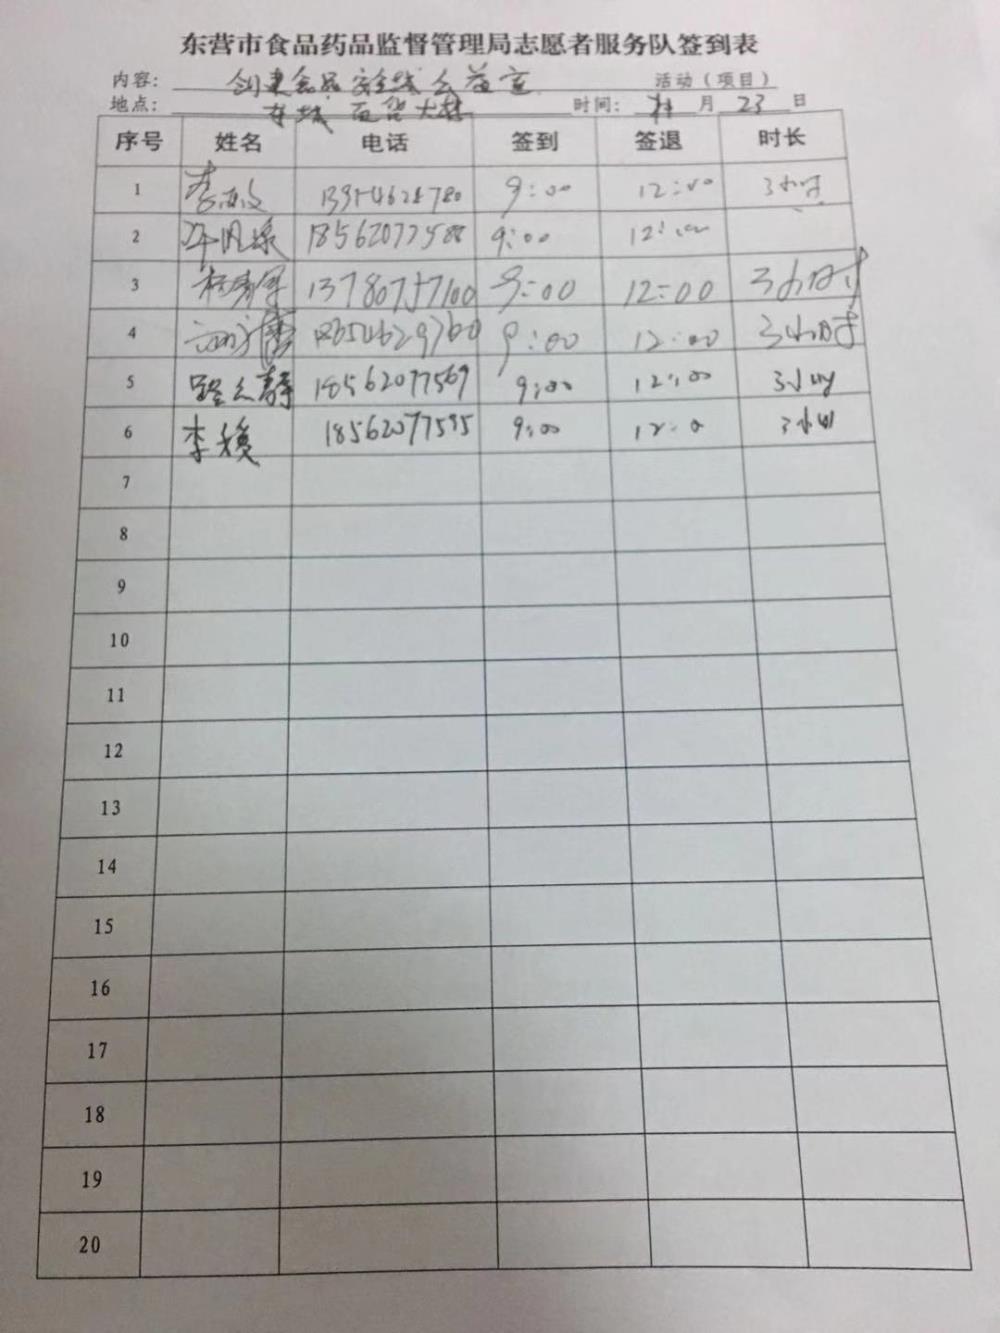 东营市食品药品监督管理局志愿者服务队签到表
内容: 创建食品安全城公益宣 活动（项目）
地点: 东城百货大楼 时间: 月 23 日
序号 姓名 电话 签到 签退 时长
1 李 9:00 12:00 3小时
2 18562077588 9:00 12:00
3 9:00 12:00 3小时
4 9:00 12:00 3小时
5 18562077569 9:00 12:00 3小时
6 李 18562077595 9:00 12:0 3小时
7
8
9
10
11
12
13
14
15
16
17
18
19
20